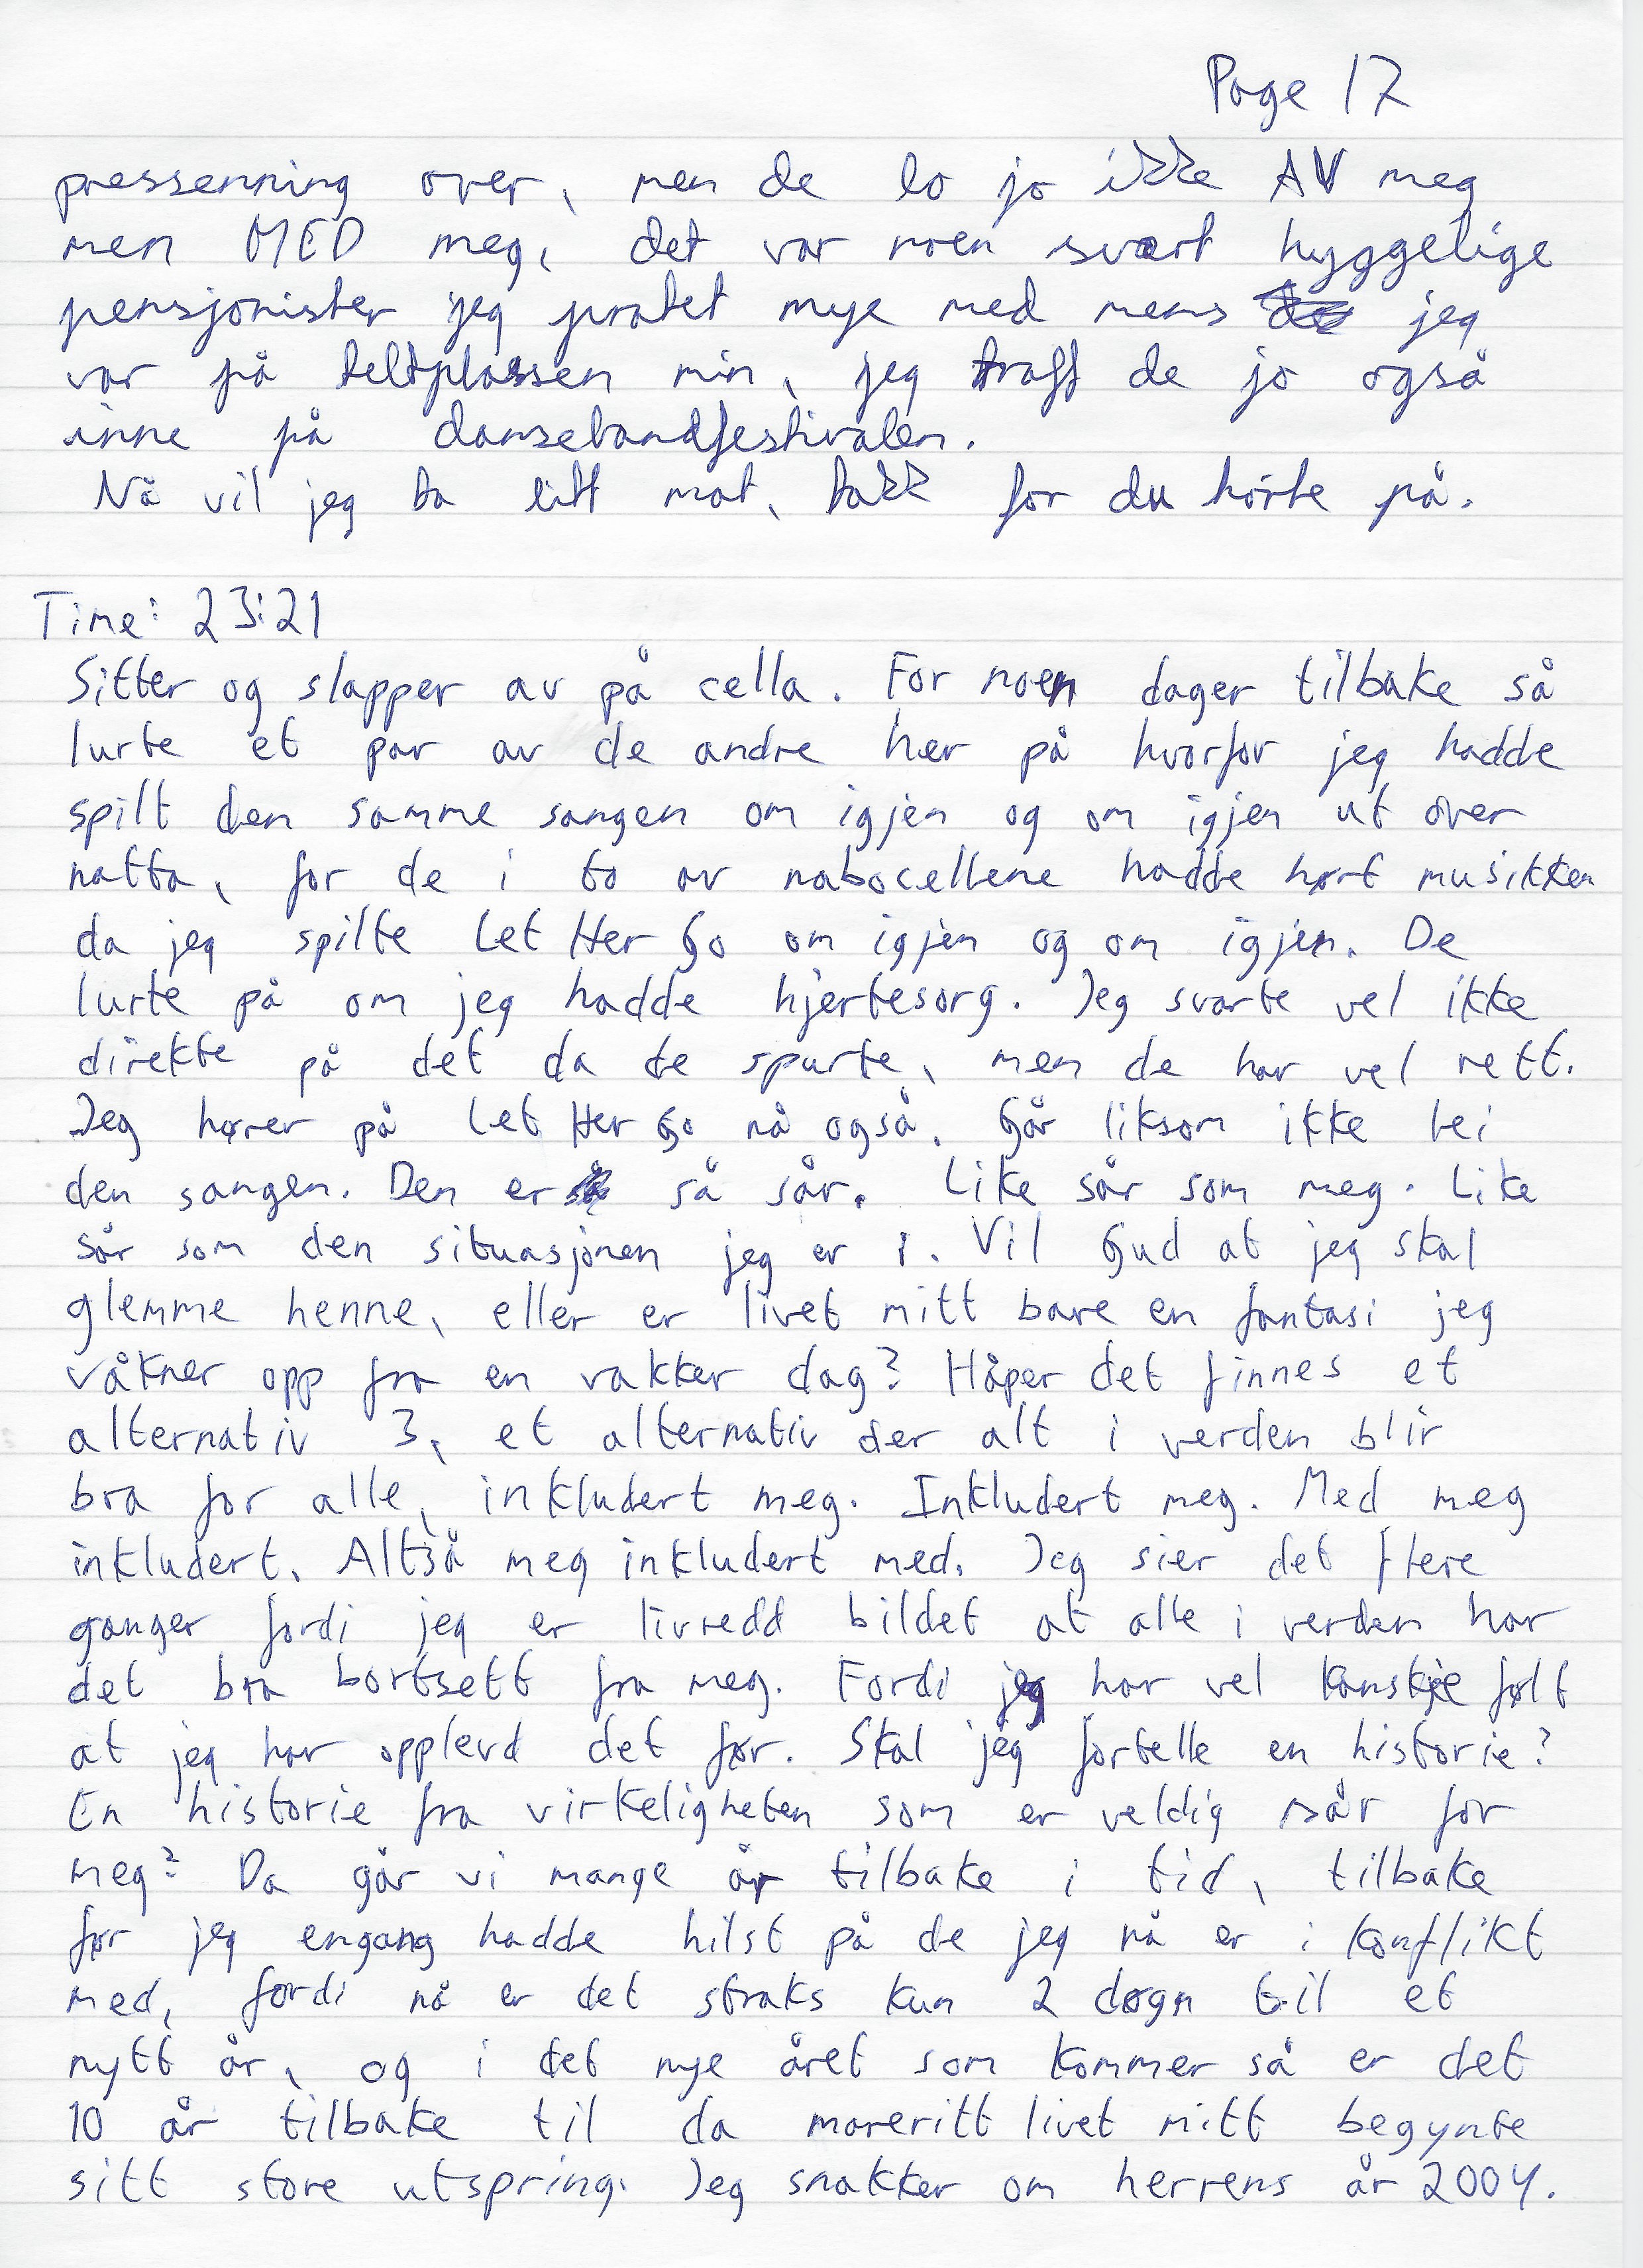 Page 17
pressenning over, men de lo jo ikke AV meg
men MED meg, det var noen svært hyggelige
pensjonister jeg pratet mye med mens jeg
var på teltplassen min, jeg traff de jo også
inne på dansebandfestivalen.
Nå vil jeg ta litt mat, takk for du hørte på.
Time: 23:21
Sitter og slapper av på cella. For noen dager tilbake så
lurte et par av de andre her på hvorfor jeg hadde
spilt den samme sangen om igjen og om igjen ut over
natta, for de i to av nabocellene hadde hørt musikken
da jeg spilte Let Her Go om igjen og om igjen. De
lurte på om jeg hadde hjertesorg. Jeg svarte vel ikke
direkte på det da de spurte, men de har vel rett.
Jeg hører på Let Her Go nå også. Går liksom ikke lei
den sangen. Den er så sår. Like sår som meg. Like
sår som den situasjonen jeg er i. Vil Gud at jeg skal
glemme henne, eller er livet mitt bare en fantasi jeg
våkner opp fra en vakker dag? Håper det finnes et
alternativ 3, et alternativ der alt i verden blir
bra for alle, inkludert meg. Inkludert meg. Med meg
inkludert. Altså meg inkludert med. Jeg sier det flere
ganger fordi jeg er livredd bildet at alle i verden har
det bra bortsett fra meg. Fordi jeg har vel kanskje følt
at jeg har opplevd det før. Skal jeg fortelle en historie?
En historie fra virkeligheten som er veldig sår for
meg? Da går vi mange år tilbake i tid, tilbake
før jeg engang hadde hilst på de jeg nå er i konflikt
med, fordi nå er det straks kun 2 døgn til et
nytt år, og i det nye året som kommer så er det
10 år tilbake til da marerittlivet mitt begynte
sitt store utspring. Jeg snakker om herrens år 2004.